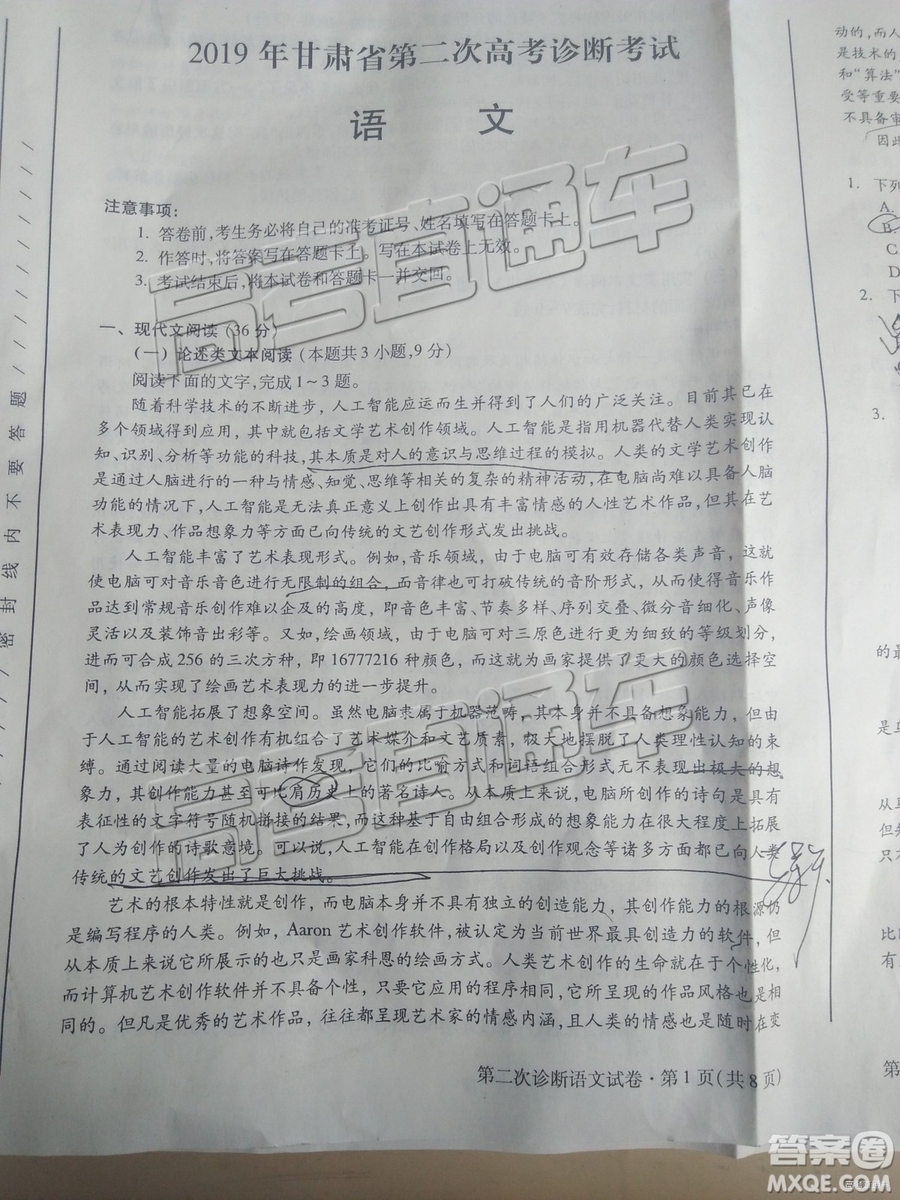 2019 年甘肃省第二次高考诊断考试
语 文
注意事项:
1. 答卷前,考生务必将自己的准考证号、姓名填写在答题卡上。
2. 作答时,将答案写在答题卡上。写在本试卷上无效。
3. 考试结束后,将本试卷和答题卡一并交回。
一、现代文阅读(36 分)
(一) 论述类文本阅读(本题共3小题,9分)
阅读下面的文字,完成1~3题。
随着科学技术的不断进步,人工智能应运而生并得到了人们的广泛关注。目前其已在
多个领域得到应用,其中就包括文学艺术创作领域。人工智能是指用机器代替人类实现认
知、识别、分析等功能的科技,其本质是对人的意识与思维过程的模拟。人类的文学艺术创作
是通过人脑进行的一种与情感、知觉、思维等相关的复杂的精神活动,在电脑尚难以具备人脑
功能的情况下,人工智能是无法真正意义上创作出具有丰富情感的人性艺术作品,但其在艺
术表现力、作品想象力等方面已向传统的文艺创作形式发出挑战。
人工智能丰富了艺术表现形式。例如,音乐领域,由于电脑可有效存储各类声音,这就
使电脑可对音乐音色进行无限制的组合,而音律也可打破传统的音阶形式,从而使得音乐作
品达到常规音乐创作难以企及的高度,即音色丰富、节奏多样、序列交叠、微分音细化、声像
灵活以及装饰音出彩等。又如,绘画领域,由于电脑可对三原色进行更为细致的等级划分,
进而可合成256的三次方种,即16777216种颜色,而这为画家提供了更大的颜色选择空
间,从而实现了绘画艺术表现力的进一步提升。
人工智能拓展了想象空间。虽然电脑隶属于机器范畴,其本身并不具备想象能力,但由
于人工智能的艺术创作有机组合了艺术媒介和文艺质素,极大地摆脱了人类理性认知的束
缚。通过阅读大量的电脑诗作发现,它们的比喻方式和词语组合形式无不表现出极大的想
象力,其创作能力甚至可比肩历史上的著名诗人。从本质上来说,电脑所创作的诗句是具有
表征性的文字符号随机拼接的结果,而这种基于自由组合形成的想象能力在很大程度上拓展
了人为创作的诗歌意境。可以说,人工智能在创作格局以及创作观念等诸多方面都已向人类
传统的文艺创作发出了巨大挑战。
艺术的根本特性就是创作,而电脑本身并不具有独立的创造能力,其创作能力的根源仍
是编写程序的人类。例如,Aaron艺术创作软件,被认定为当前世界最具创造力的软件,但
从本质上来说它所展示的也只是画家科恩的绘画方式。人类艺术创作的生命就在于个性化,
而计算机艺术创作软件并不具备个性,只要它应用的程序相同,它所呈现的作品风格也是相
同的。但凡是优秀的艺术作品,往往都呈现艺术家的情感内涵,且人类的情感也是随时在变
第二次诊断语文试卷·第1页(共8页)
密封线内不要答题
动的,而人
是技术的
和“算法”
受等重要
不具备审
因此
1. 下列
A.
B
C
D
2. 下
3.
的最
是
从
但知
只
比
有
第
高考直通车
高考直通车
高考直通车
答案圈
MXQE.COM